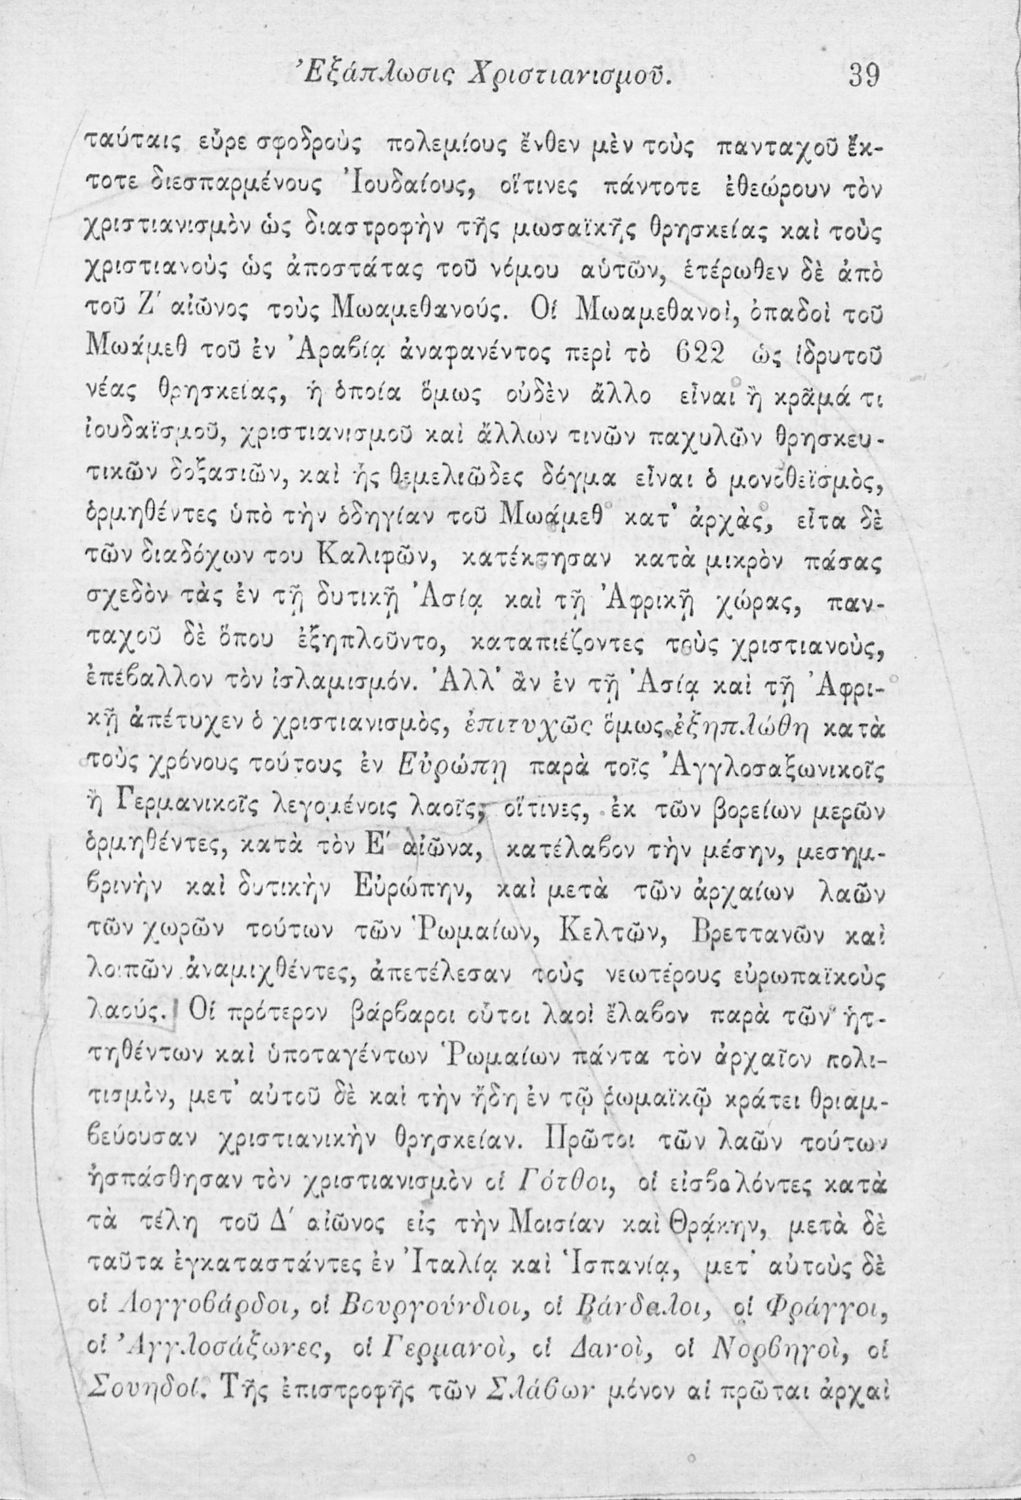 Ἐξάπλωσις Χριστιανισμοῦ. 39
ταύταις εὗρε σφοδροὺς πολεμίους ἔνθεν μὲν τοὺς πανταχοῦ ἔκ-
τοτε διεσπαρμένους Ἰουδαίους, οἵτινες πάντοτε ἐθεώρουν τὸν
χριστιανισμὸν ὡς διαστροφὴν τῆς μωσαϊκῆς θρησκείας καὶ τοὺς
χριστιανοὺς ὡς ἀποστάτας τοῦ νόμου αὑτῶν, ἑτέρωθεν δὲ ἀπὸ
τοῦ Ζ΄ αἰῶνος τοὺς Μωαμεθανούς. Οἱ Μωαμεθανοὶ, ὀπαδοὶ τοῦ
Μωάμεθ τοῦ ἐν Ἀραβίᾳ ἀναφανέντος περὶ τὸ 622 ὡς ἱδρυτοῦ
νέας θρησκείας, ἡ ὁποία ὅμως οὐδὲν ἄλλο εἶναι ἢ κρᾶμά τι
ἰουδαϊσμοῦ, χριστιανισμοῦ καὶ ἄλλων τινῶν παχυλῶν θρησκευ-
τικῶν δοξασιῶν, καὶ ἧς θεμελιῶδες δόγμα εἶναι ὁ μονοθεϊσμὸς,
ὁρμηθέντες ὑπὸ τὴν ὁδηγίαν τοῦ Μωάμεθ κατ' ἀρχὰς, εἶτα δὲ
τῶν διαδόχων του Καλιφῶν, κατέκτησαν κατὰ μικρὸν πάσας
σχεδὸν τὰς ἐν τῇ δυτικῇ Ἀσίᾳ καὶ τῇ Ἀφρικῇ χώρας, παν-
ταχοῦ δὲ ὅπου ἐξηπλοῦντο, καταπιέζοντες τοὺς χριστιανοὺς,
ἐπέβαλλον τὸν ἰσλαμισμόν. Ἀλλ' ἂν ἐν τῇ Ἀσίᾳ καὶ τῇ Ἀφρι-
κῇ ἀπέτυχεν ὁ χριστιανισμὸς, ἐπιτυχῶς ὅμως ἐξηπλώθη κατὰ
τοὺς χρόνους τούτους ἐν Εὐρώπῃ παρὰ τοῖς Ἀγγλοσαξωνικοῖς
ἢ Γερμανικοῖς λεγομένοις λαοῖς, οἵτινες, ἐκ τῶν βορείων μερῶν
ὁρμηθέντες, κατὰ τὸν Ε΄ αἰῶνα, κατέλαβον τὴν μέσην, μεσημ-
βρινὴν καὶ δυτικὴν Εὐρώπην, καὶ μετὰ τῶν ἀρχαίων λαῶν
τῶν χωρῶν τούτων τῶν Ῥωμαίων, Κελτῶν, Βρεττανῶν καὶ
λοιπῶν ἀναμιχθέντες, ἀπετέλεσαν τοὺς νεωτέρους εὐρωπαϊκοὺς
λαούς. Οἱ πρότερον βάρβαροι οὗτοι λαοὶ ἔλαβον παρὰ τῶν ἡτ-
τηθέντων καὶ ὑποταγέντων Ῥωμαίων πάντα τὸν ἀρχαῖον πολι-
τισμὸν, μετ' αὐτοῦ δὲ καὶ τὴν ἤδη ἐν τῷ ῥωμαϊκῷ κράτει θριαμ-
βεύουσαν χριστιανικὴν θρησκείαν. Πρῶτοι τῶν λαῶν τούτων
ἠσπάσθησαν τὸν χριστιανισμὸν οἱ Γότθοι, οἱ εἰσβαλόντες κατὰ
τὰ τέλη τοῦ Δ΄ αἰῶνος εἰς τὴν Μοισίαν καὶ Θρᾴκην, μετὰ δὲ
ταῦτα ἐγκαταστάντες ἐν Ἰταλίᾳ καὶ Ἱσπανίᾳ, μετ' αὐτοὺς δὲ
οἱ Λογγοβάρδοι, οἱ Βουργούνδιοι, οἱ Βάνδαλοι, οἱ Φράγγοι,
οἱ Ἀγγλοσάξωνες, οἱ Γερμανοὶ, οἱ Δανοὶ, οἱ Νορβηγοὶ, οἱ
Σουηδοί. Τῆς ἐπιστροφῆς τῶν Σλάβων μόνον αἱ πρῶται ἀρχαὶ